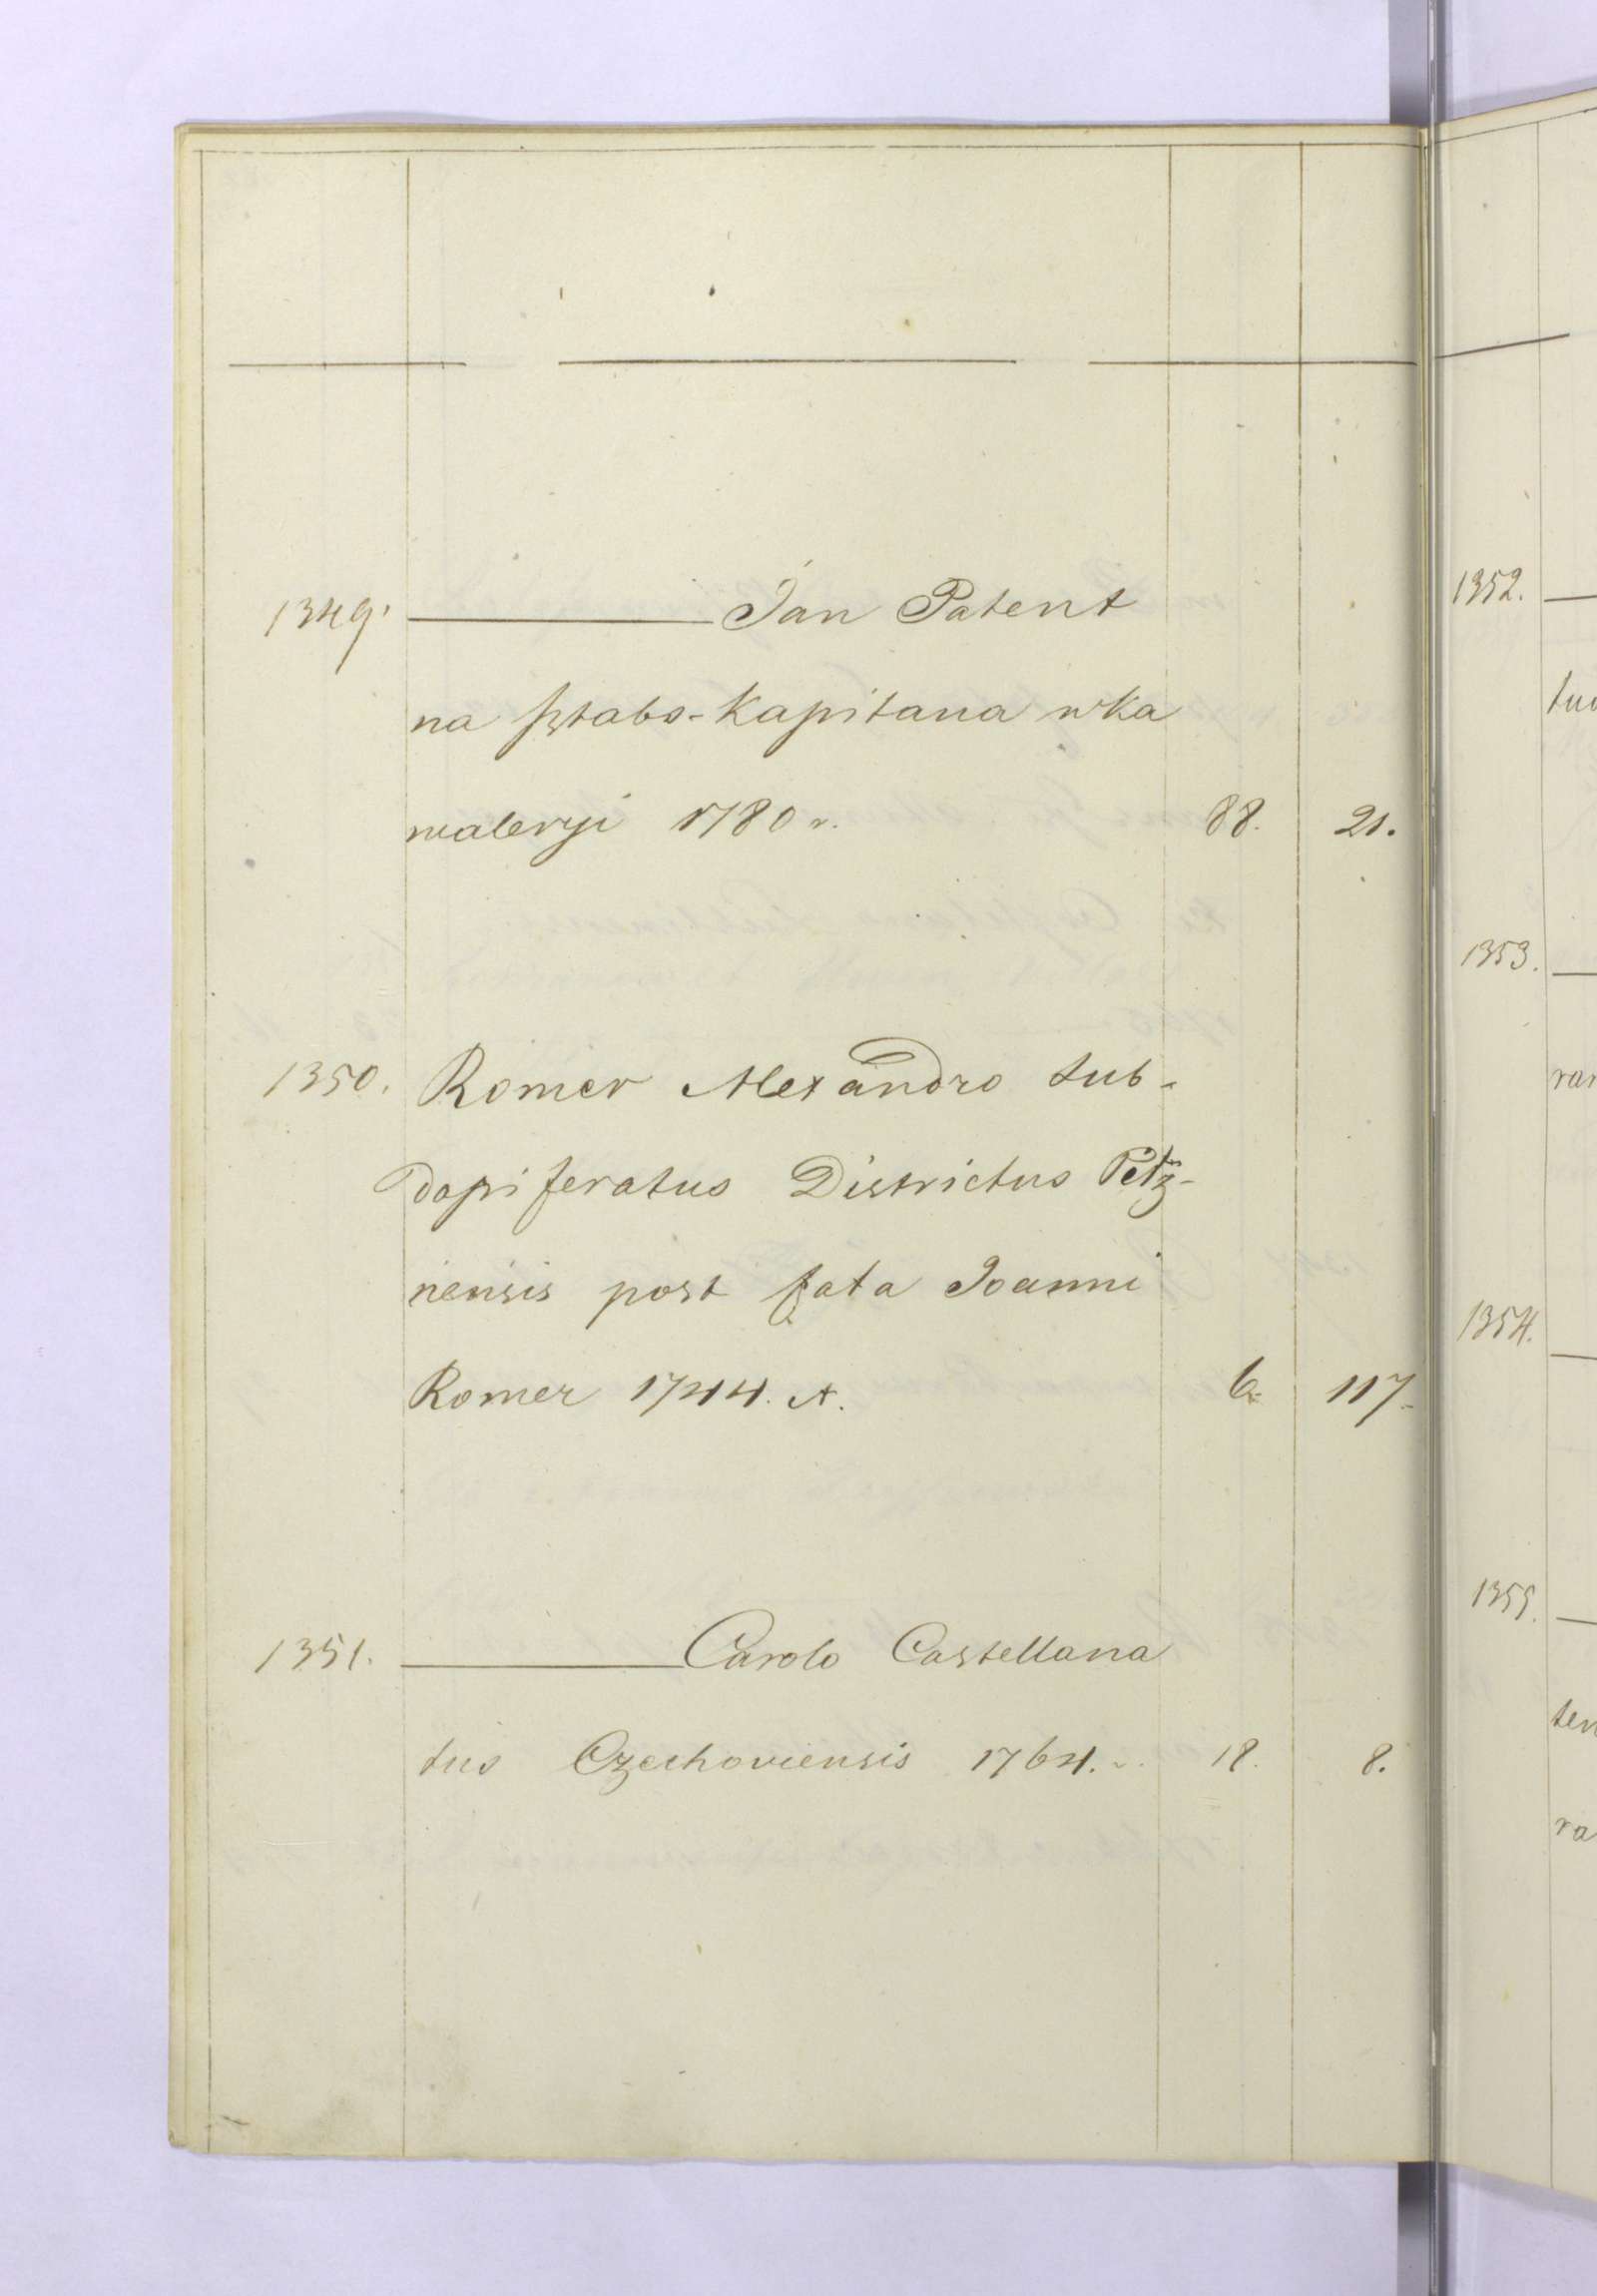 1349. ——— Jan Patent
na sztabs-Kapitana w Ka
waleryi 1780 r. 88. 21.
1350. Romer Alexandro sub-
dapiferatus Districtus Pilz-
nensis post fata Joanni
Romer 1744. r. 6. 117.
1351. ——— Carolo Castellana
tus Czechoviensis 1764. r. 18. 8.
1352.
tus
1353.
ran
1354.
1355.
ten
ra